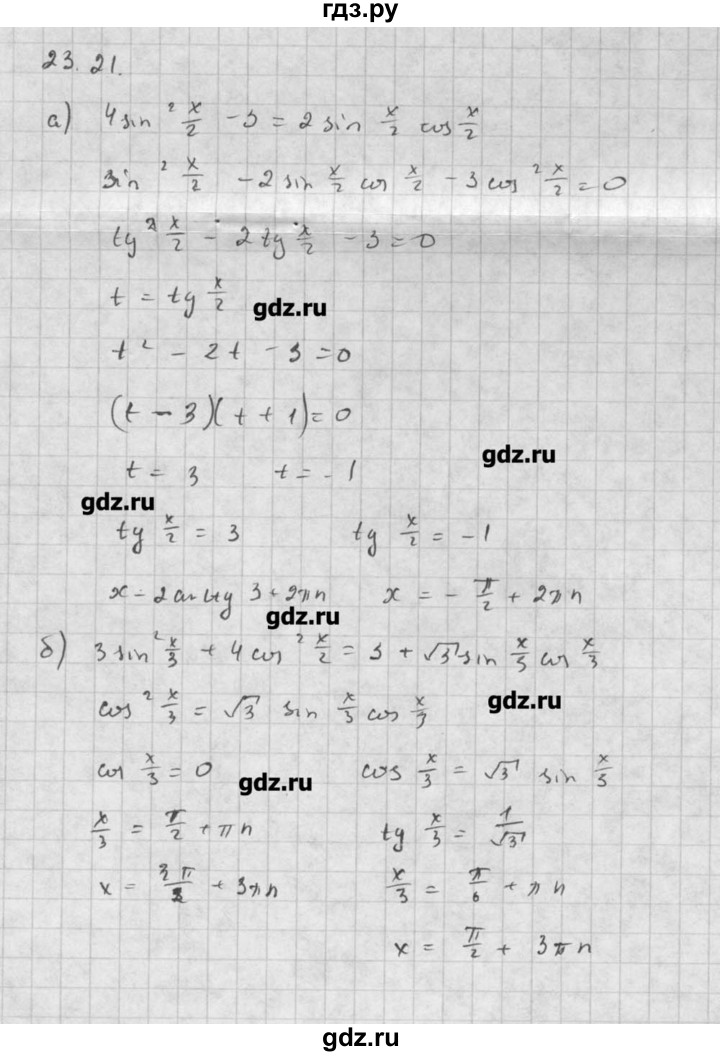 гдз.ру
23.21.
а) 4 sin² x/2 - 3 = 2 sin x/2 cos x/2
sin² x/2 - 2 sin x/2 cos x/2 - 3 cos² x/2 = 0
tg² x/2 - 2 tg x/2 - 3 = 0
t = tg x/2
gdz.ru
t² - 2t - 3 = 0
(t - 3)(t + 1) = 0
gdz.ru
t = 3 t = -1
gdz.ru
tg x/2 = 3 tg x/2 = -1
x = 2 arctg 3 + 2πn x = - π/2 + 2πn
gdz.ru
б) 3 sin² x/3 + 4 cos² x/2 = 3 + √3 sin x/3 cos x/3
cos² x/3 = √3 sin x/3 cos x/3
gdz.ru
cos x/3 = 0 cos x/3 = √3 sin x/3
gdz.ru
x/3 = π/2 + πn tg x/3 = 1/√3
x = 3π/2 + 3πn x/3 = π/6 + πn
x = π/2 + 3πn
gdz.ru